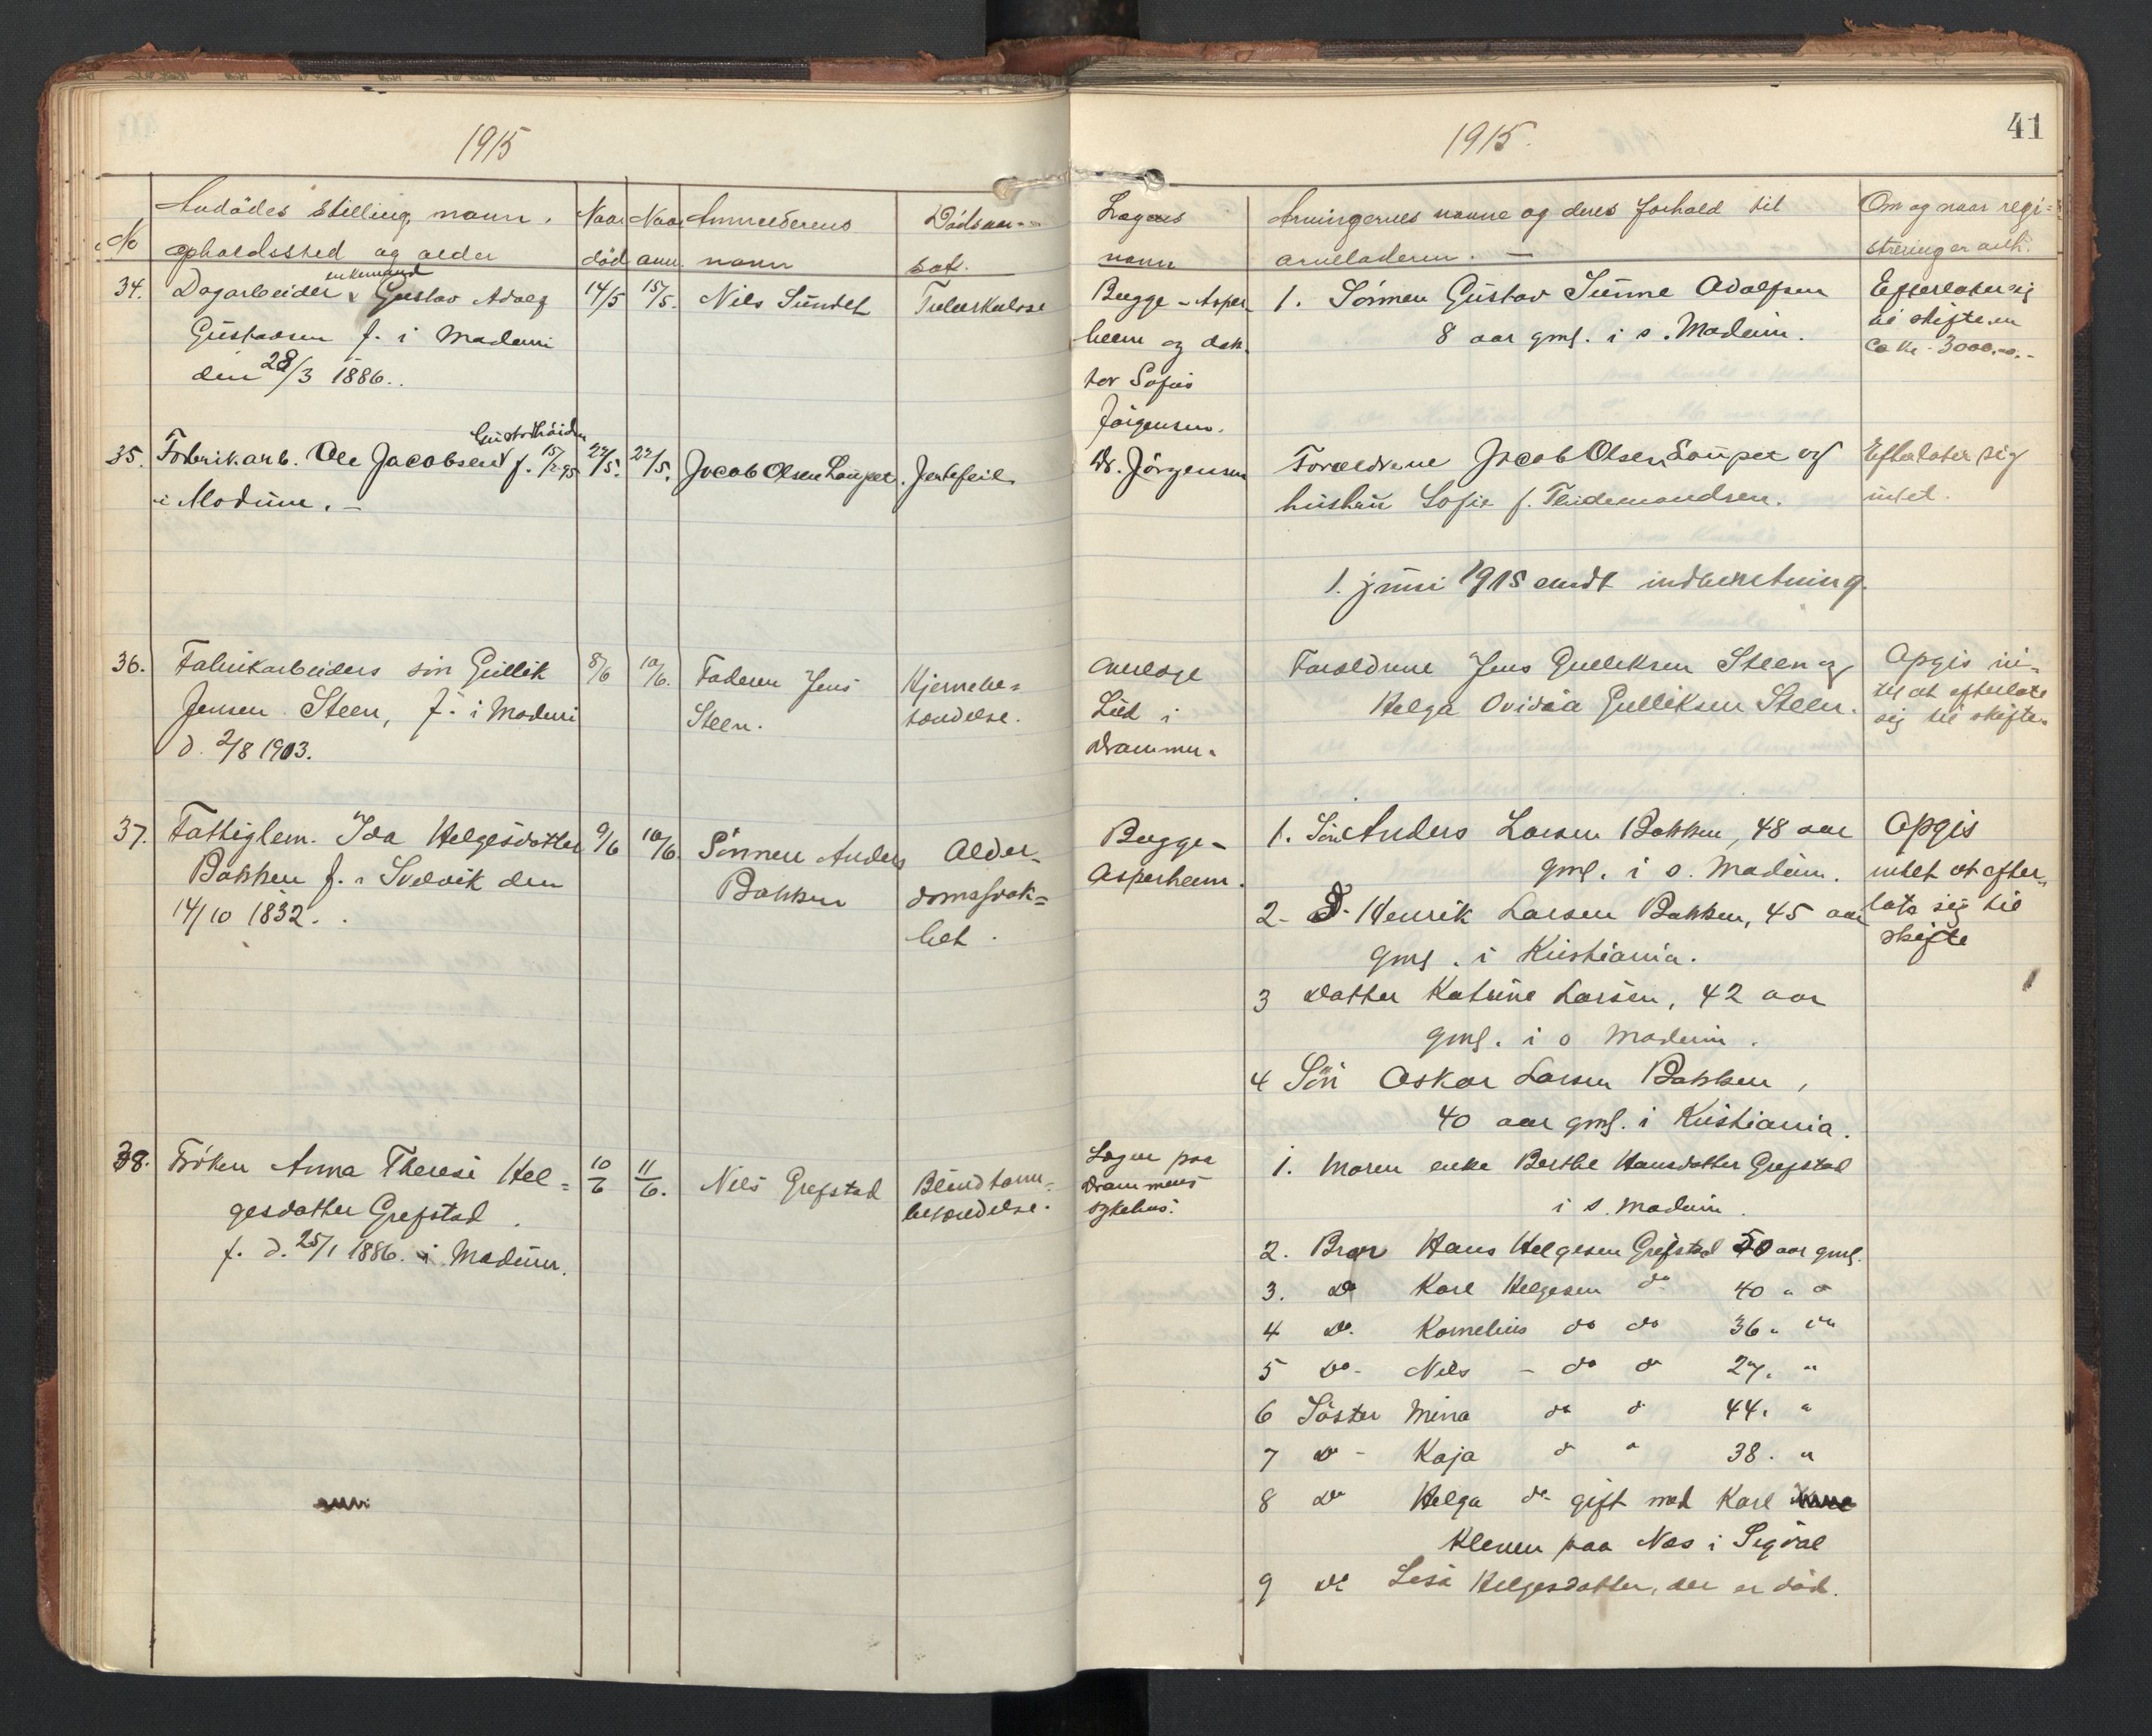 1915
No
Avdödes stilling, navn,
opholdssted og alder
Naar
död
Naar
anm.
Anmelderens
navn
Dödsaar-
sak.
34.
Dagarbeider & enkemand Gustav Adolf
Gustavsen f. i Modum
den 28/3 1886.
14/5
15/5.
Nils Sundet
Tuberkulose
35.
Fabrikarb. Ole Jacobsen Gustadhöiden f. 15/2 95
i Modum. -
22/5.
22/5.
Jacob Olsen Loupet.
Jertefeil
36.
Fabrikarbeiders sön Gullik
Jensen Steen, f. i Modum
d. 2/8 1903.
8/6
10/6.
Faderen Jens
Steen.
Hjernebe-
tændelse.
37.
Fattiglem. Ida Helgesdatter
Bakken f. i Svelvik den
14/10 1832.
9/6
10/6.
Sönnen Anders
Bakken
Alder-
domssvak-
het.
38.
Fröken Anna Therese Hel-
gesdatter Grefstad
f. d. 25/1 1886. i Modum.
10/6
11/6.
Nils Grefstad
Blindtarm-
betændelse.
1915.
41
Lægens
navn
Arvingernes navne og deres forhold til
arveladeren. -
Om og naar regi-
strering er anh.
Bugge-Asper-
heim og dok-
tor Sofus
Jörgensen.
1. Sönnen Gustav Sunne Adolfsen
8 aar gml. i s. Modum.
Efterlater sig
til skifte en
ca kr. 3000,-
Dr. Jörgensen
Forældrene Jacob Olsen Loupet og
hustru Sofie f. Thidemandsen.
Efterlater sig
intet.
1. juni 1915 sendt indberetning.
Overlæge
Lied i
Drammen.
Forældrene Jens Gulliksen Steen og
Helga Ovidia Gulliksen Steen.
Opgis in-
tet at efterlate
sig til skifte.
Bugge-
Asperheim.
1. Sön Anders Larsen Bakken, 48 aar
gml. i s. Modum.
2- D- Henrik Larsen Bakken, 45 aar
gml. i Kristiania.
3 Datter Katrine Larsen, 42 aar
gml. i s Modum.
4 Sön Oskar Larsen Bakken,
40 aar gml. i Kristiania.
Opgis
intet at efter-
late sig til
skifte
Lægen paa
Drammens
sykehus.
1. Moren enke Berthe Hansdatter Grefstad
i s. Modum.
2. Bror Hans Helgesen Grefstad 50 aar gml.
3. Do Karl Helgesen do 40 " "
4 Do. Kornelius do do 36 " "
5 Do- Nils - do do 27. "
6 Söster Mina do do 44. "
7 Do - Kaja do " 38. "
8 Do Helga do gift med Karl
Kleven paa Næs i Sigdal
9 Do Lisa Helgesdatter, der er död.